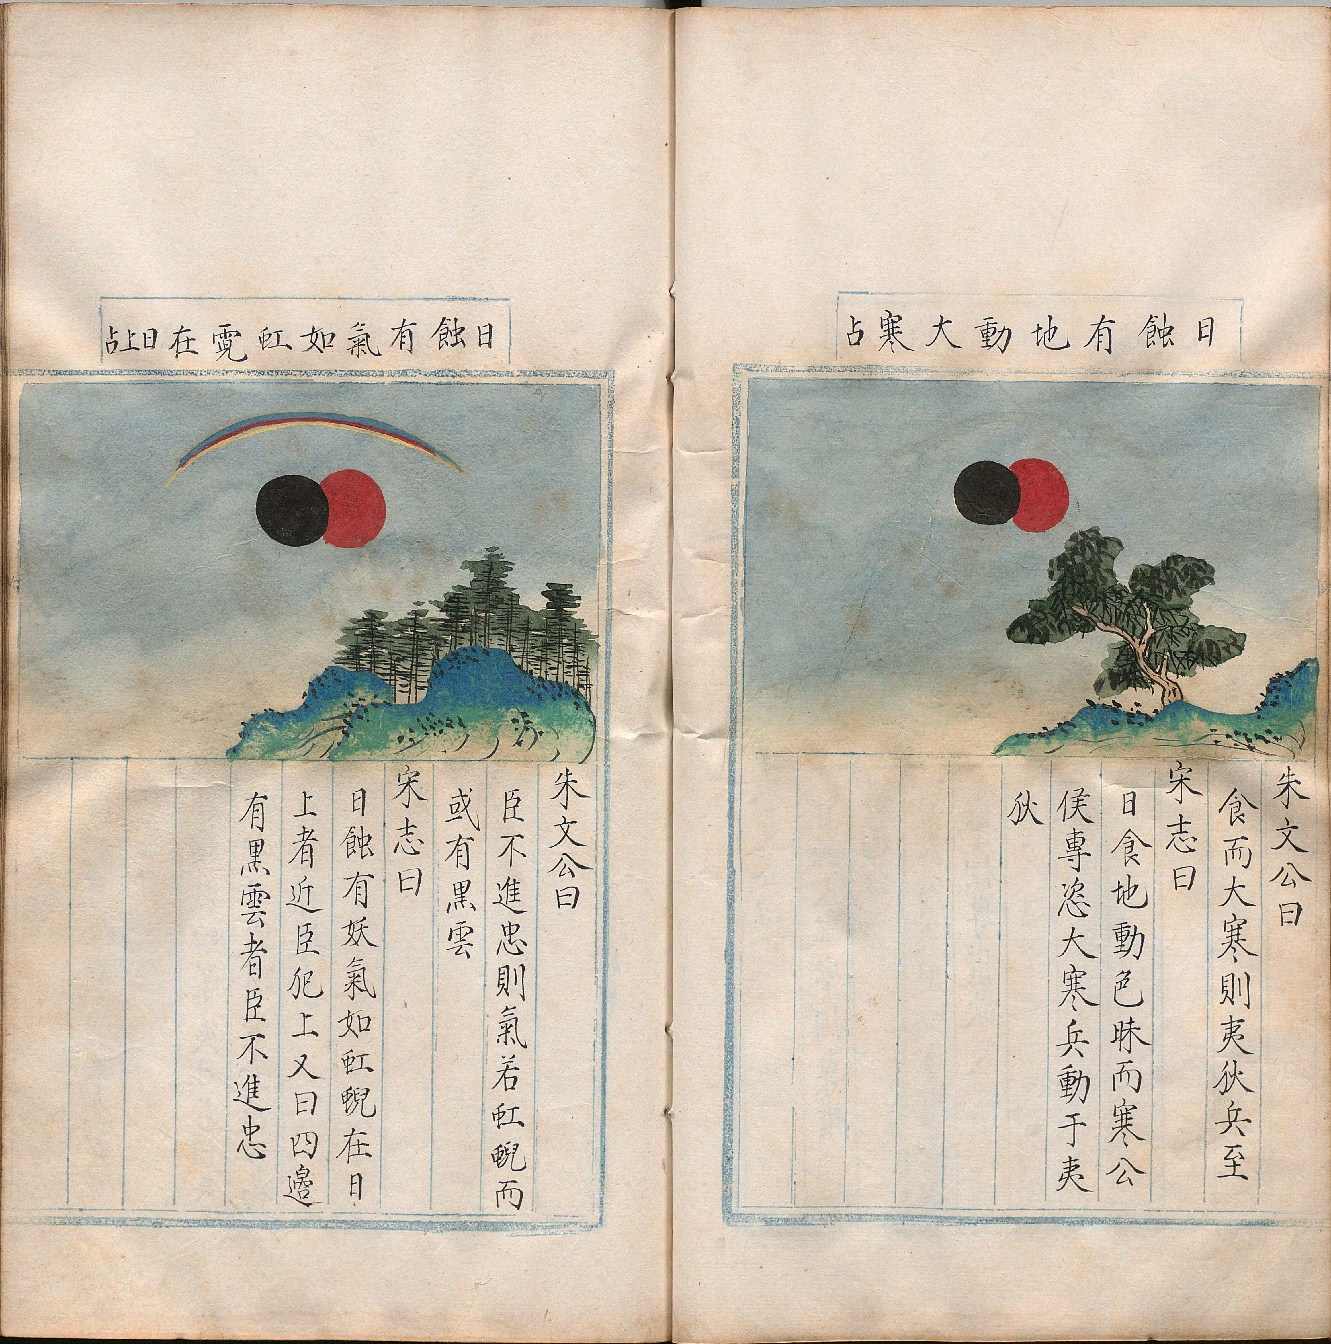 日蝕有地動大寒占
朱文公曰
食而大寒則夷狄兵至
宋志曰
日食地動色昧而寒公
侯專恣大寒兵動于夷
狄
日蝕有氣如虹霓在日上占
朱文公曰
臣不進忠則氣若虹蜺而
或有黒雲
宋志曰
日蝕有妖氣如虹蜺在日
上者近臣犯上又曰四邊
有黒雲者臣不進忠